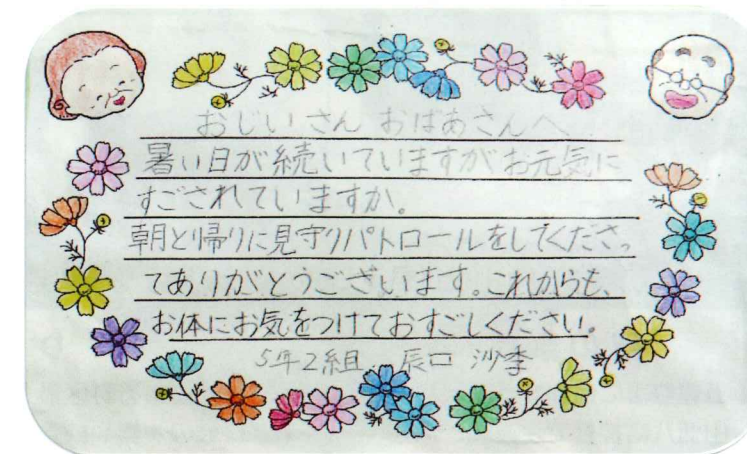 おじいさん おばあさんへ
暑い日が続いていますがお元気に
すごされていますか。
朝と帰りに見守りパトロールをしてくださっ
てありがとうございます。これからも、
お体にお気をつけておすごしください。
5年2組 辰口 沙季